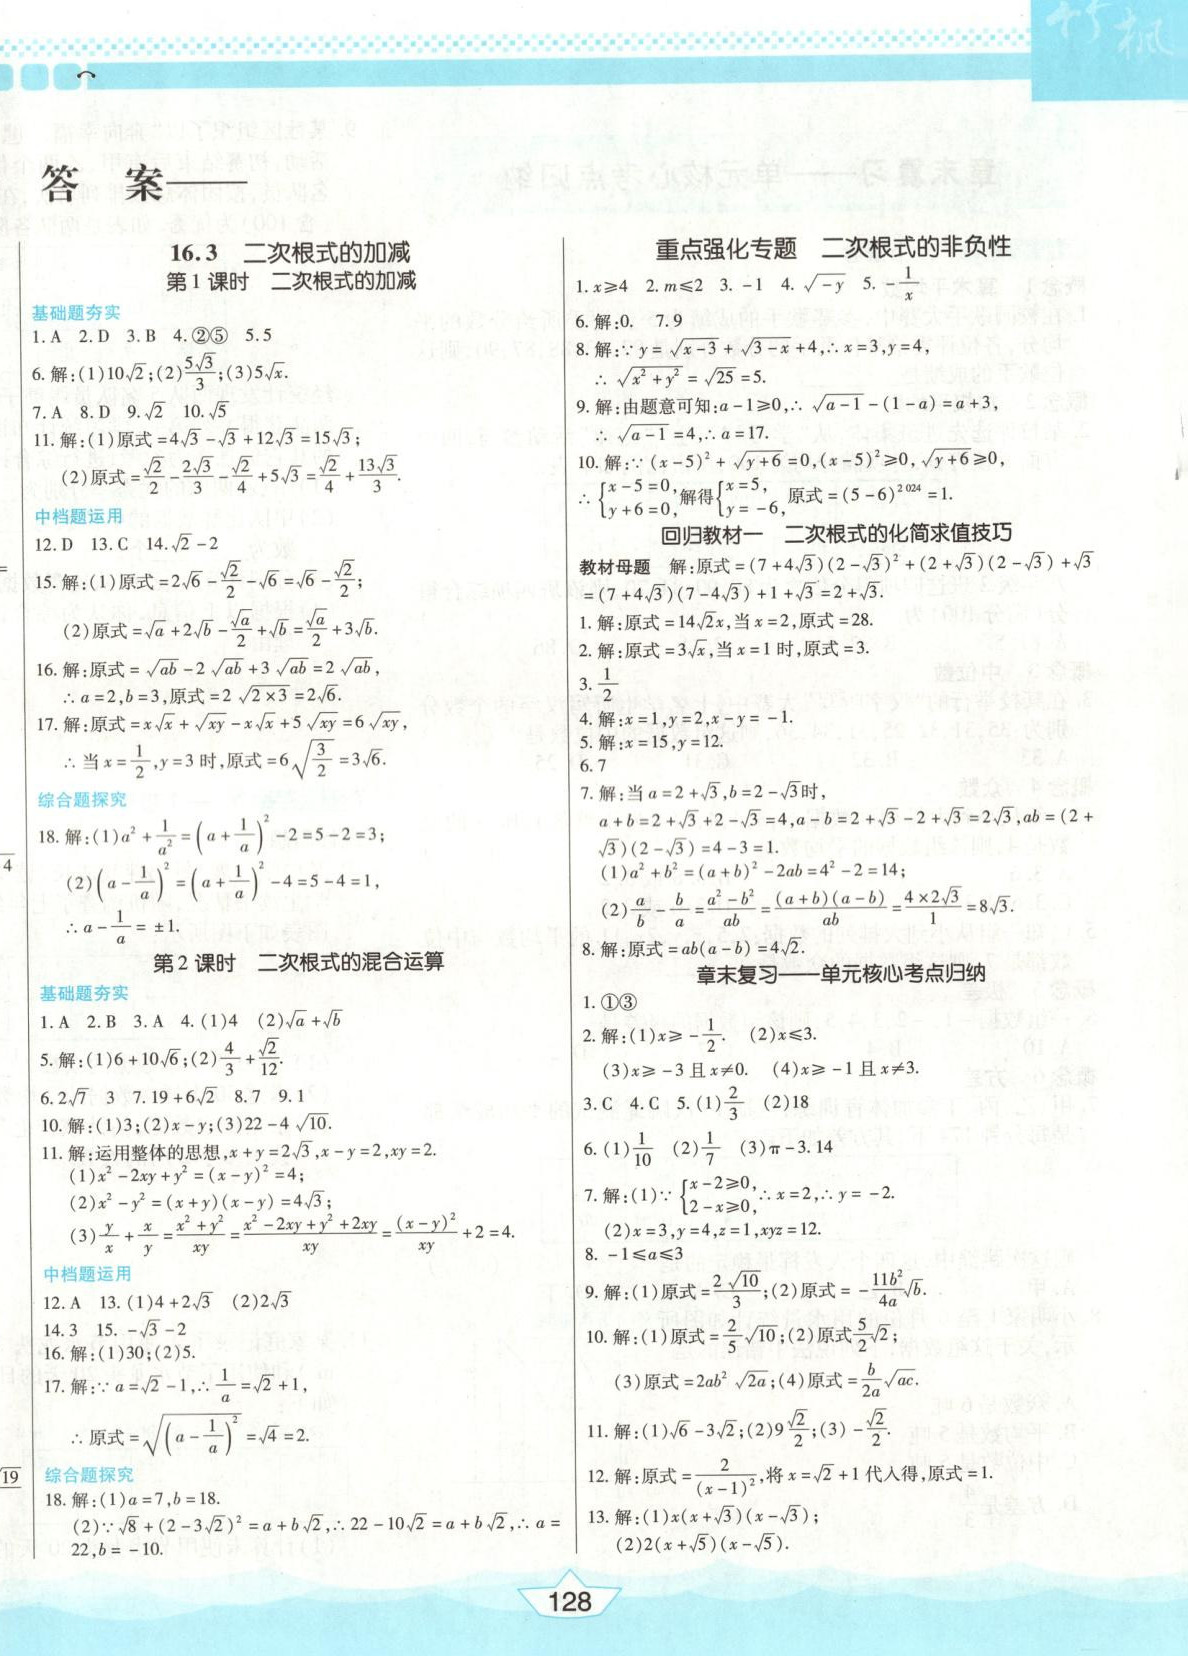 竹枫
答 案——
16.3 二次根式的加减
第1课时 二次根式的加减
基础题夯实
1.A 2.D 3.B 4.②⑤ 5.5
6.解:(1)10√2;(2)5√3/3;(3)5√x.
7.A 8.D 9.√2 10.√5
11.解:(1)原式=4√3-√3+12√3=15√3;
(2)原式=√2/2-2√3/3-√2/4+5√3=√2/4+13√3/3.
中档题运用
12.D 13.C 14.√2-2
15.解:(1)原式=2√6-√2/2-√6=√6-√2/2;
(2)原式=√a+2√b-√a/2+√b=√a/2+3√b.
16.解:原式=√ab-2√ab+3√ab=2√ab,
∴a=2,b=3,原式=2√(2×3)=2√6.
17.解:原式=x√x+√xy-x√x+5√xy=6√xy,
∴当x=1/2,y=3时,原式=6√(3/2)=3√6.
综合题探究
18.解:(1)a²+1/a²=(a+1/a)²-2=5-2=3;
(2)(a-1/a)²=(a+1/a)²-4=5-4=1,
∴a-1/a=±1.
第2课时 二次根式的混合运算
基础题夯实
1.A 2.B 3.A 4.(1)4 (2)√a+√b
5.解:(1)6+10√6;(2)4/3+√2/12.
6.2√7 3 7.19+6√2 8.7 9.1
10.解:(1)3;(2)x-y;(3)22-4√10.
11.解:运用整体的思想,x+y=2√3,x-y=2,xy=2.
(1)x²-2xy+y²=(x-y)²=4;
(2)x²-y²=(x+y)(x-y)=4√3;
(3)y/x+x/y=(x²+y²)/xy=(x²-2xy+y²+2xy)/xy=(x-y)²/xy+2=4.
中档题运用
12.A 13.(1)4+2√3 (2)2√3
14.3 15.-√3-2
16.解:(1)30;(2)5.
17.解:∵a=√2-1,∴1/a=√2+1,
∴原式=√((a-1/a)²)=√4=2.
综合题探究
18.解:(1)a=7,b=18.
(2)∵√8+(2-3√2)²=a+b√2,∴22-10√2=a+b√2,∴a=
22,b=-10.
重点强化专题 二次根式的非负性
1.x≥4 2.m≤2 3.-1 4.√(-y) 5.-1/x
6.解:0. 7.9
8.解:∵y=√(x-3)+√(3-x)+4,∴x=3,y=4,
∴√(x²+y²)=√25=5.
9.解:由题意可知:a-1≥0,∴√(a-1)-(1-a)=a+3,
∴√(a-1)=4,∴a=17.
10.解:∵(x-5)²+√(y+6)=0,(x-5)²≥0,√(y+6)≥0,
∴{x-5=0, y+6=0,解得{x=5, y=-6,原式=(5-6)²⁰²⁴=1.
回归教材一 二次根式的化简求值技巧
教材母题 解:原式=(7+4√3)(2-√3)²+(2+√3)(2-√3)+√3
=(7+4√3)(7-4√3)+1+√3=2+√3.
1.解:原式=14√2x,当x=2,原式=28.
2.解:原式=3√x,当x=1时,原式=3.
3.1/2
4.解:x=1,y=2,x-y=-1.
5.解:x=15,y=12.
6.7
7.解:当a=2+√3,b=2-√3时,
a+b=2+√3+2-√3=4,a-b=2+√3-2+√3=2√3,ab=(2+
√3)(2-√3)=4-3=1.
(1)a²+b²=(a+b)²-2ab=4²-2=14;
(2)a/b-b/a=(a²-b²)/ab=(a+b)(a-b)/ab=4×2√3/1=8√3.
8.解:原式=ab(a-b)=4√2.
章末复习——单元核心考点归纳
1.①③
2.解:(1)x≥-1/2. (2)x≤3.
(3)x≥-3且x≠0. (4)x≥-1且x≠3.
3.C 4.C 5.(1)2/3 (2)18
6.(1)1/10 (2)1/7 (3)π-3.14
7.解:(1)∵{x-2≥0, 2-x≥0,∴x=2,∴y=-2.
(2)x=3,y=4,z=1,xyz=12.
8.-1≤a≤3
9.解:(1)原式=2√10/3;(2)原式=-11b²/4a√b;
10.解:(1)原式=2/5√10;(2)原式5/2√2;
(3)原式=2ab²√2a;(4)原式=b/2a√ac.
11.解:(1)√6-3√2;(2)9√2/2;(3)-√2/2.
12.解:原式=2/(x-1)²,将x=√2+1代入得,原式=1.
13.解:(1)x(x+√3)(x-√3);
(2)2(x+√5)(x-√5).
4
19
128